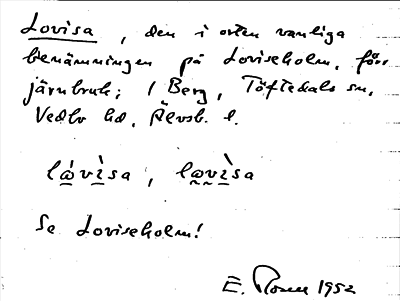 Lovisa, den i orten vanliga
benämningen på Loviseholm, förr
järnbruk; i Berg, Töftedals sn,
Vedbo hd, Älvsb. l.
lávìsa, lavìsa
Se Loviseholm!
E. Rosen 1952